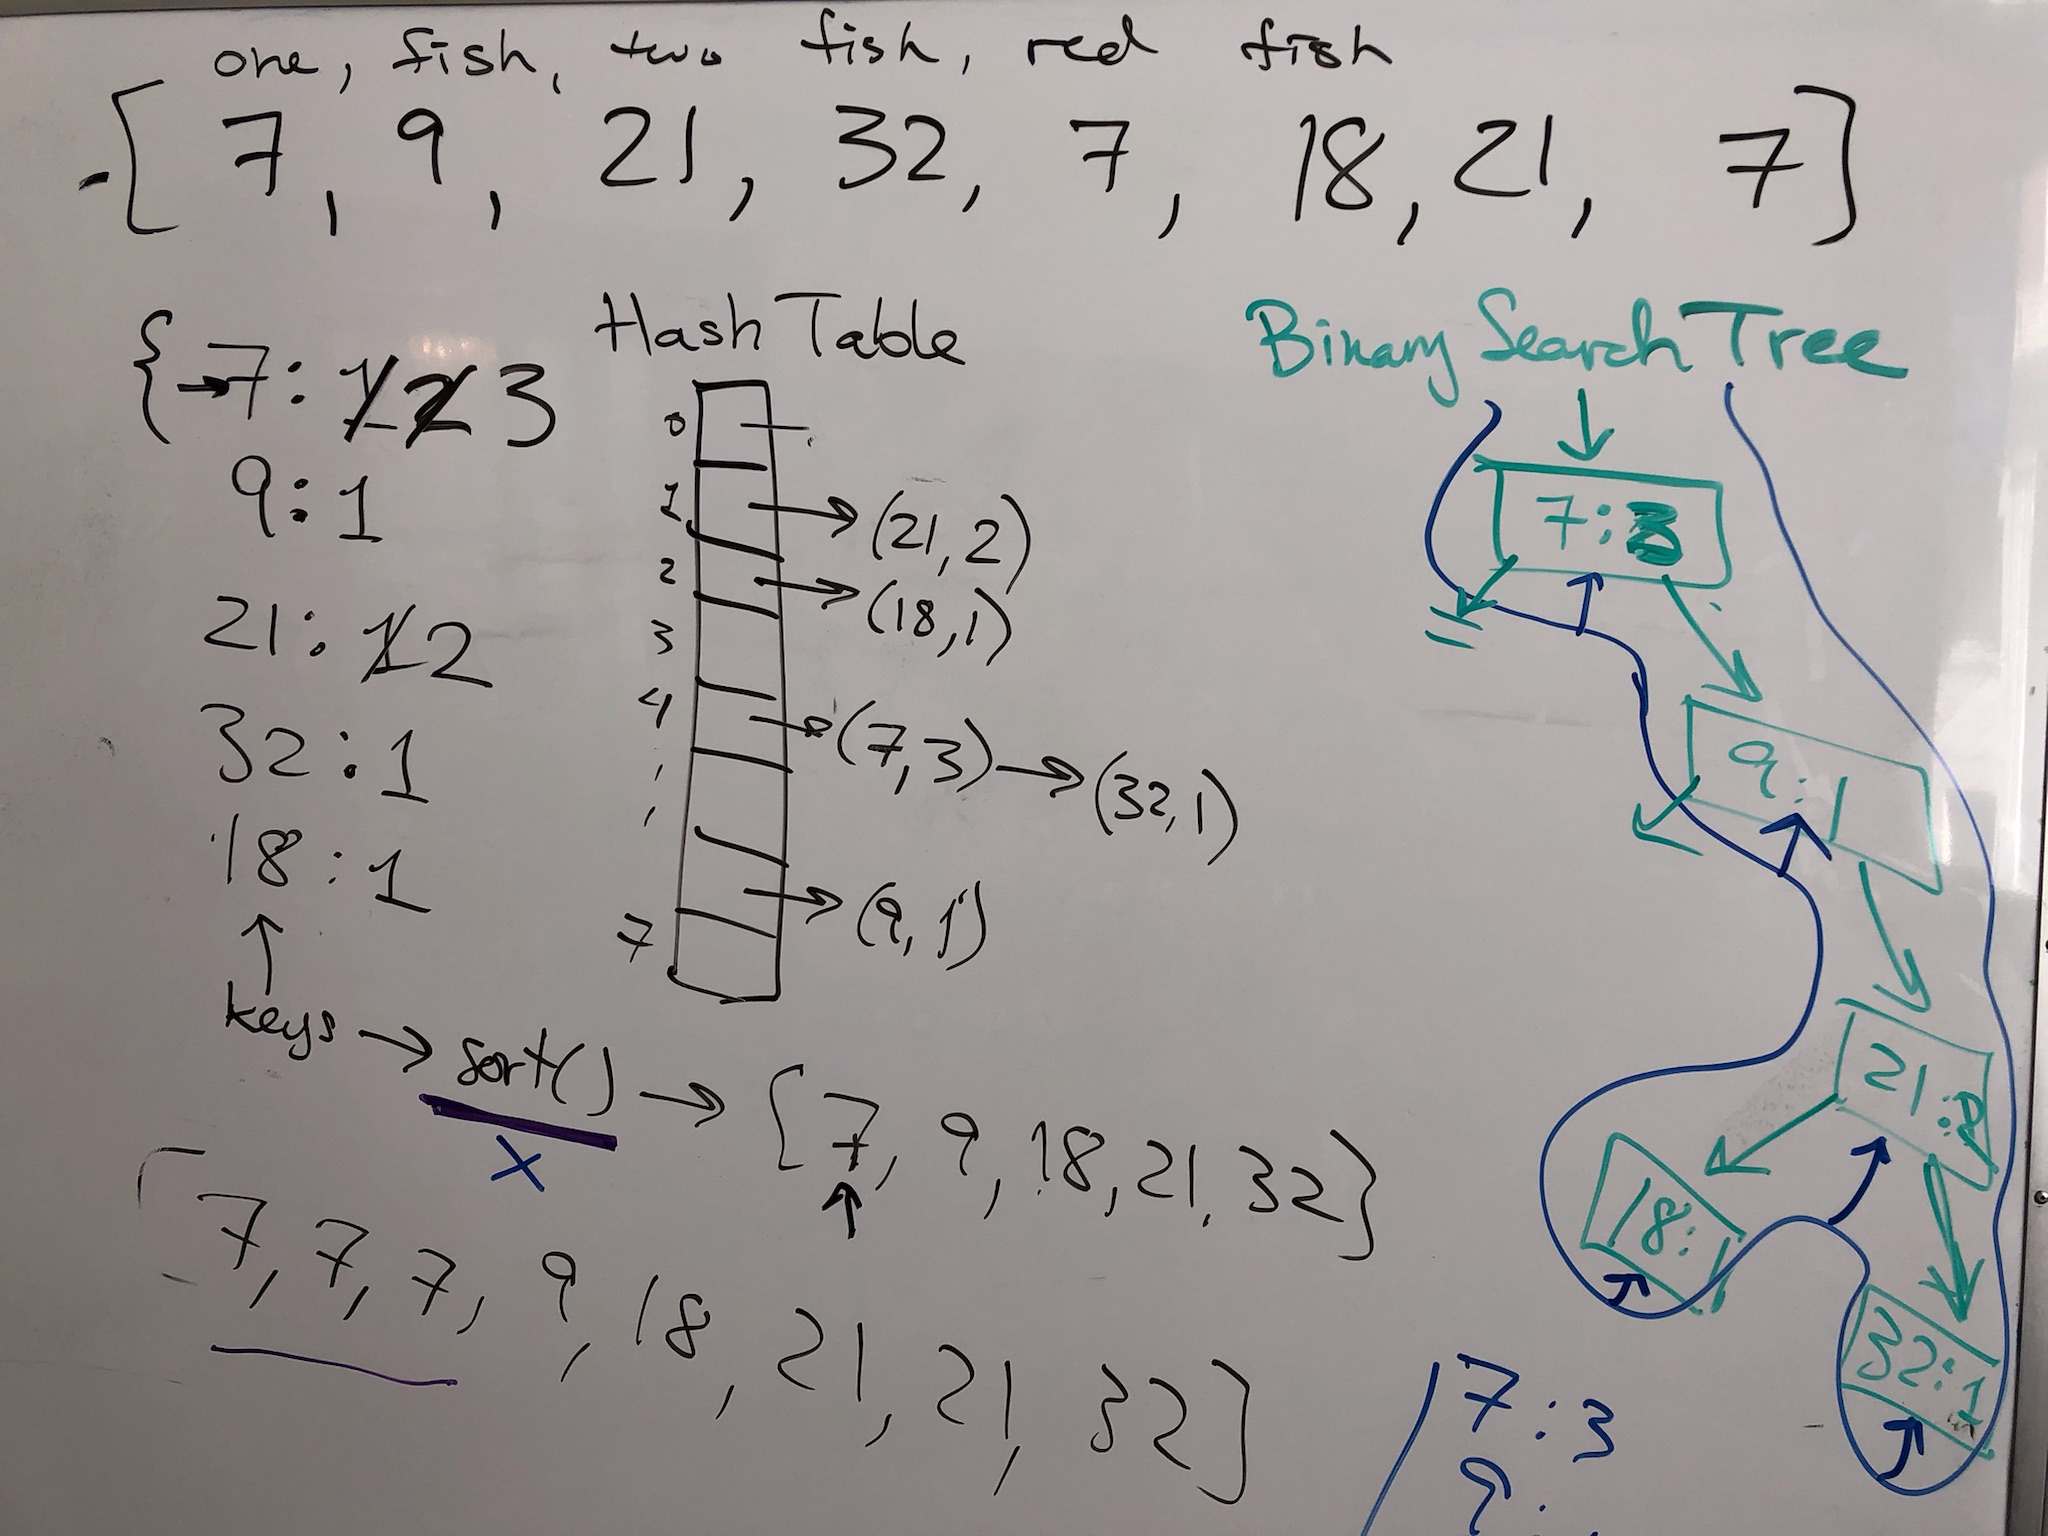 one, fish, two fish, red fish
[ 7, 9, 21, 32, 7, 18, 21, 7 ]
{ → 7: 1 2 3
9: 1
21: 1 2
32: 1
18: 1
↑
keys → sort() → { 7, 9, 18, 21, 32 }
X
↑
[ 7, 7, 7, 9, 18, 21, 21, 32 ]
Hash Table
0
1 → (21, 2)
2 → (18, 1)
3
4 → (7, 3) → (32, 1)
→ (9, 1)
7
Binary Search Tree
7: 3
9: 1
21: 2
18: 1
32: 1
7: 3
9: